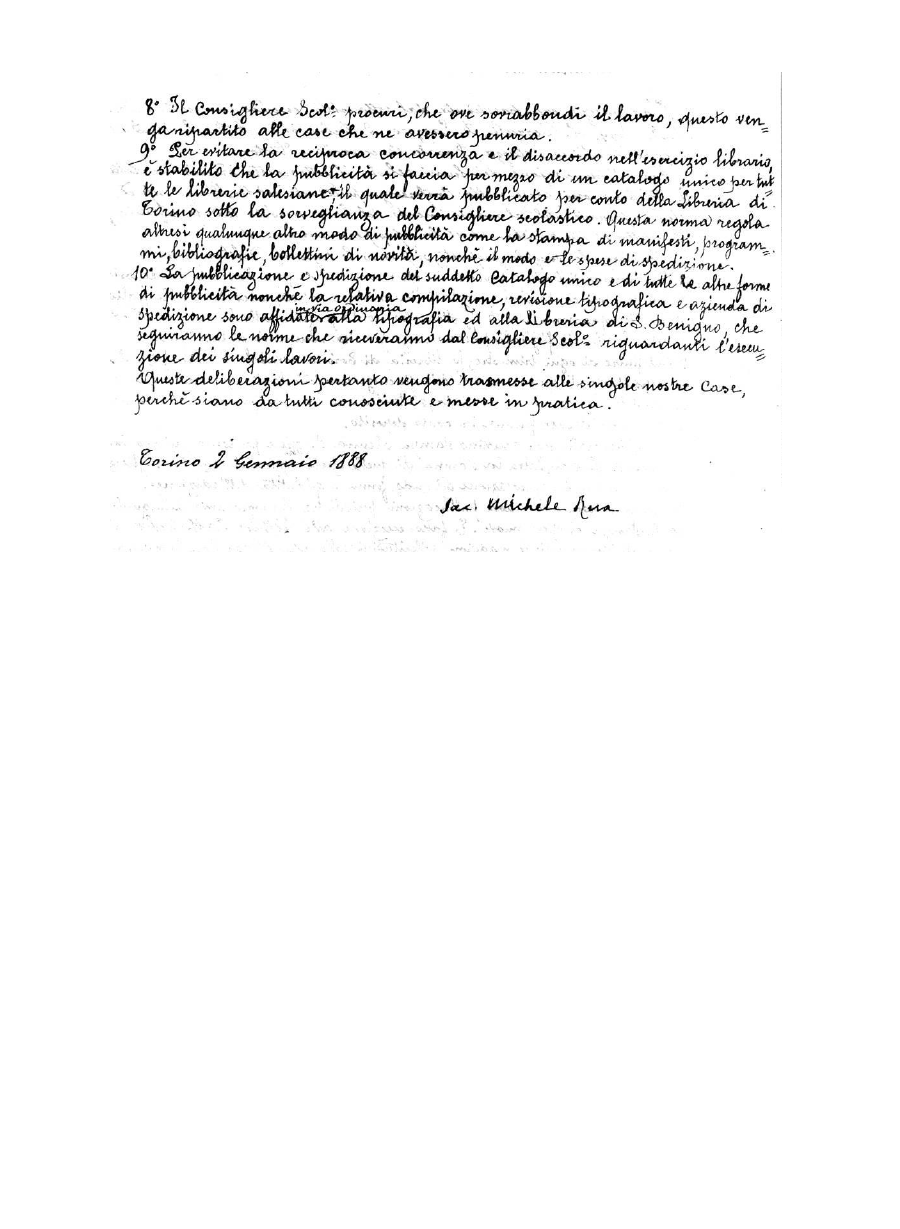 8° Il Consigliere Scol.º procuri, che ove sovrabbondi il lavoro, questo ven=
ga ripartito alle case che ne avessero penuria.
9° Per evitare la reciproca concorrenza e il disaccordo nell'esercizio librario,
è stabilito che la pubblicità si faccia per mezzo di un catalogo unico per tut=
te le librerie salesiane, il quale verrà pubblicato per conto della Libreria di
Torino sotto la sorveglianza del Consigliere scolastico. Questa norma regola
altresì qualunque altro modo di pubblicità come la stampa di manifesti, program=
mi, bibliografie, bollettini di novità, nonchè il modo e le spese di spedizione.
10° La pubblicazione e spedizione del suddetto Catalogo unico e di tutte le altre forme
di pubblicità nonchè la relativa compilazione, revisione tipografica e azienda di
in via ordinaria
spedizione sono affidate alla tipografia ed alla libreria di S. Benigno, che
seguiranno le norme che riceveranno dal Consigliere Scol.º riguardanti l'esecu=
zione dei singoli lavori.
Queste deliberazioni pertanto vengono trasmesse alle singole nostre Case,
perchè siano da tutti conosciute e messe in pratica.
Torino 2 Gennaio 1888
Sac. Michele Rua